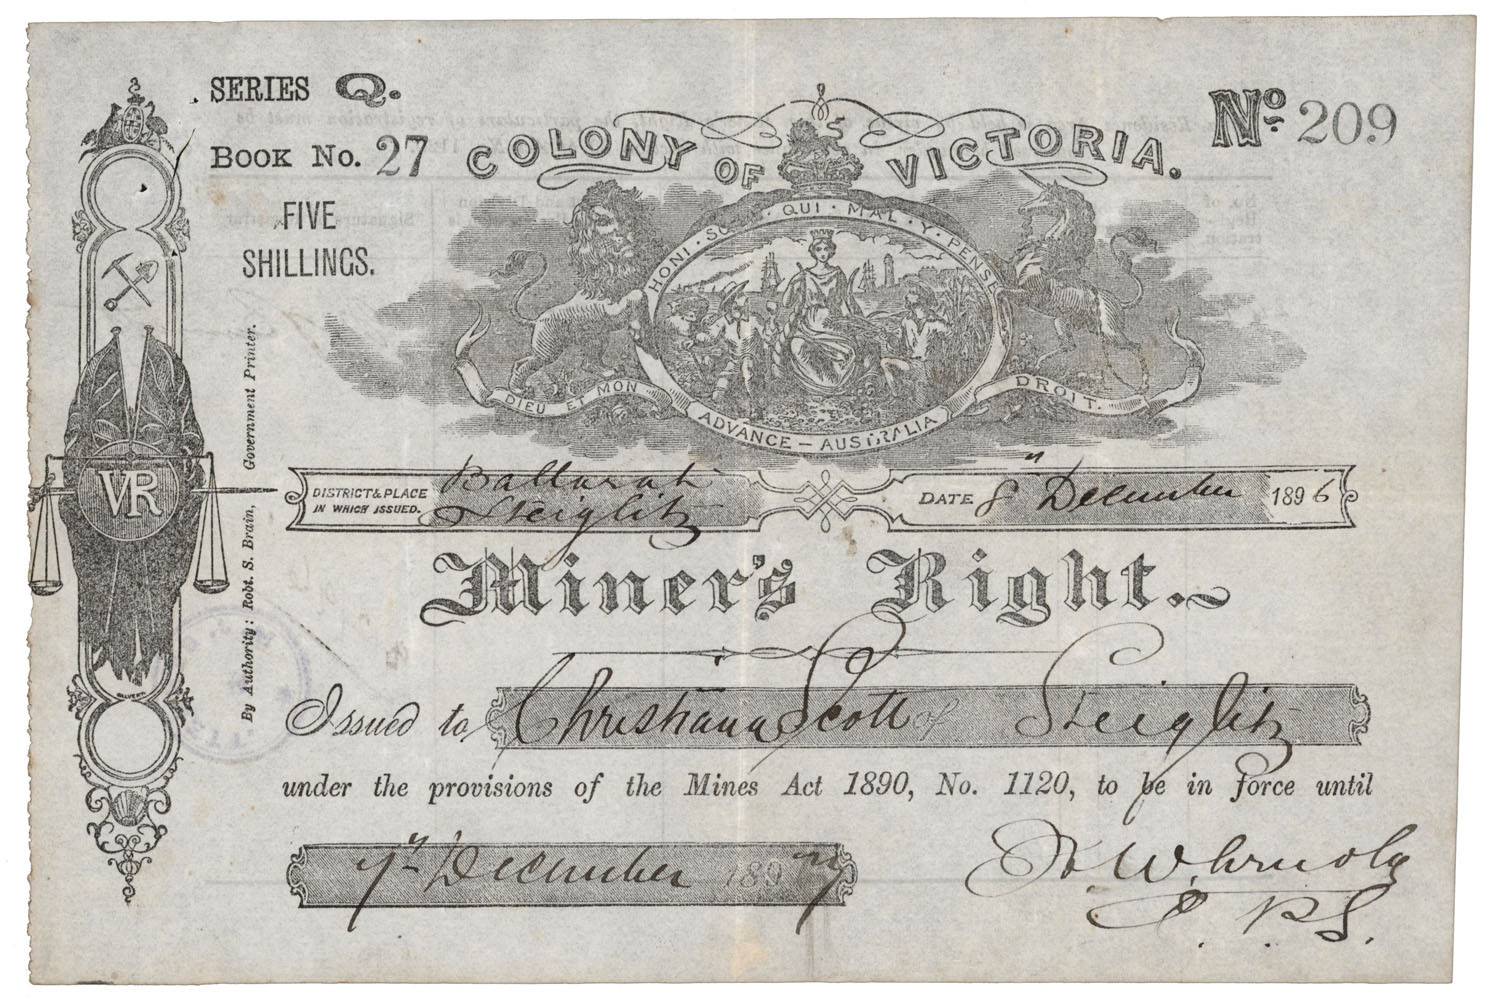 SERIES Q.
BOOK No. 27
FIVE
SHILLINGS.
COLONY OF VICTORIA.
No. 209
HONI · SO · QUI · MAL · Y · PENSE
DIEU ET MON DROIT.
ADVANCE – AUSTRALIA
VR
By Authority: Robt. S. Brain, Government Printer.
DISTRICT & PLACE IN WHICH ISSUED. Ballarat Steiglitz
DATE 8" December 1896
Miner's Right.
Issued to Christiana Scott of Steiglitz
under the provisions of the Mines Act 1890, No. 1120, to be in force until
7" December 1897
W. Arnold
P.S.